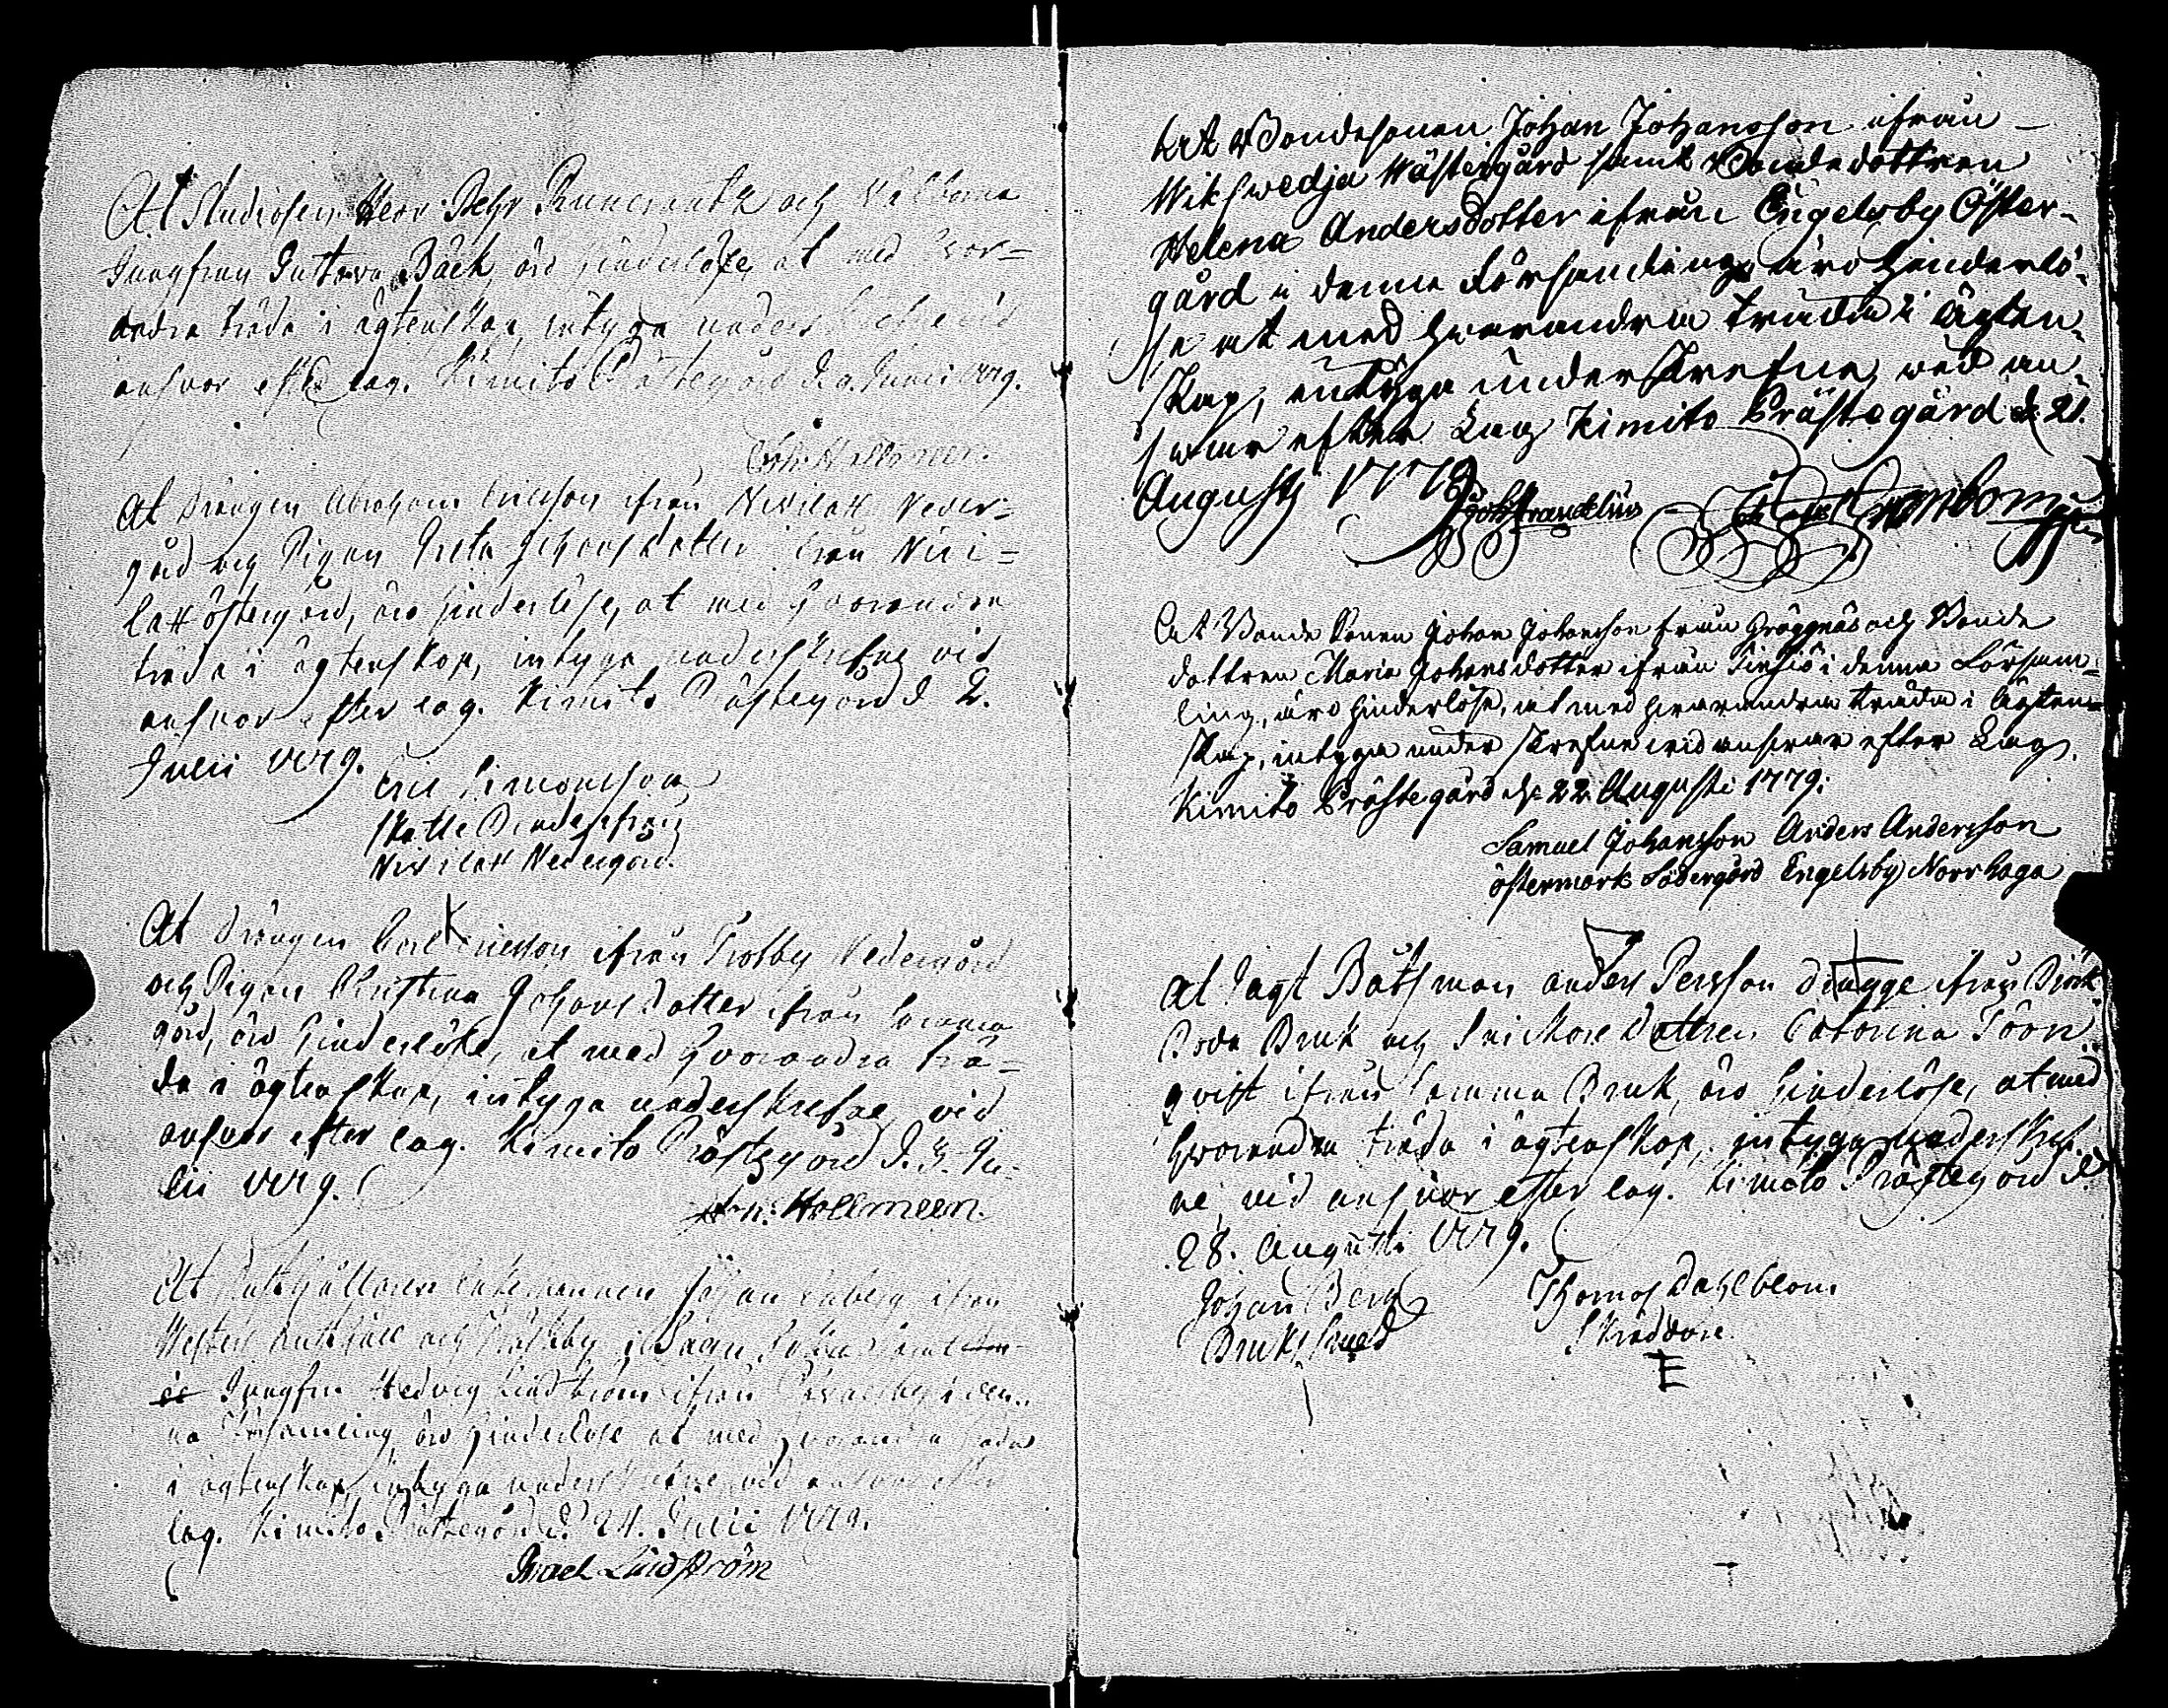 At Studiosen Herr Pehr och Välborna
Jungfrun Gustava Bäck, äro hinderlöse, at med hvar=
andra träda i ägtenskap, intyga underskrefne vid
ansvar efter lag. Kimito Prästegård d. 9. Junii 1779.
Hallmeen.
At Drängen Abraham Ericsson ifrån Nivilax Neder=
gård och Pigan Greta Johansdotter från Nivi=
lax Östergård, äro hinderlöse, at med hvarandra
träda i ägtenskap, intyga underskrefne vid
ansvar efter lag. Kimito Prästegård d. 2.
Julii 1779.
Eric Simonsson
Skatte Bonde ifrån
Nivilax Nedergård.
At Drängen Carl Ericsson ifrån Trotby Nedergård
och Pigan Christina Johansdotter ifrån samma
gård, äro hinderlöse, at med hvarandra trä=
da i ägtenskap, intyga underskrefne vid
ansvar efter lag. Kimito Prästegård d. 3. Ju-
lii 1779.
Hallmeen.
At Enkemannen Johan ifrån
och
Jungfru Hedvig Lindström ifrån i den=
na Församling, äro hinderlöse at med hvarandra träda
i ägtenskap, intyga underskrefne vid ansvar efter
lag. Kimito Prästegård d. 24. Julii 1779.
Israel Lindström
At Bondesonen Johan Johansson ifrån
Wikswedja Wästergård samt Bondedottren
Helena Andersdotter ifrån Engelsby Öster-
gård i denna Församling, äro hinderlö-
se at med hwarandra träda i Ägten-
skap, intyga underskrefne, wid an-
swar efter Lag Kimito Prästegård d. 21.
Augusti 1779
Joh: Granbom
At Bonde Sonen Johan Johansson från Gräggnäs och Bonde
dottren Maria Johansdotter ifrån i denna Försam=
ling, äro hinderlöse, at med hwarandra träda i Ägten=
skap, intyga underskrefne wid answar efter Lag.
Kimito Prästegård d. 22 Augusti 1779.
Samuel Johansson Anders Andersson
Östermark Södergård Engelsby Norrbaga
At Jagt Båtsman Anders Persson Dragge ifrån Björk
Boda Bruk och Snickare Dottren Catarina Törn
qvist ifrån samma Bruk, äro hinderlöse, at med
hvarandra träda i ägtenskap, intyga underskref-
ne, vid ansvar efter lag. Kimito Prästegård d.
28. Augusti 1779.
Johan Berg Thomas Dahlblom
Bruks smed Skräddare
E